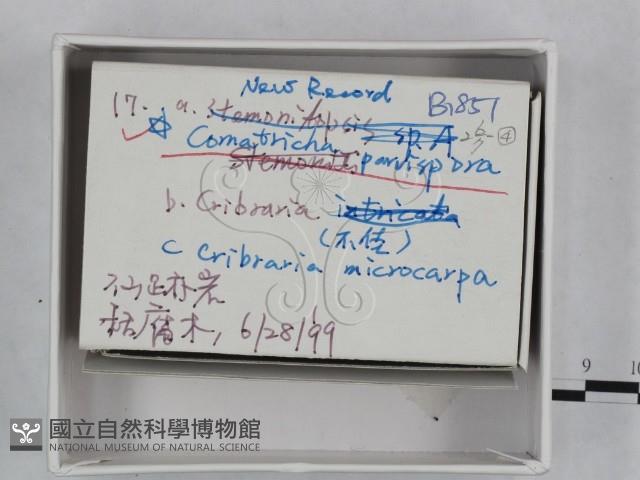 New Record
17. a. Stemonitopsis sp. A B1851
☆ Comatricha parvispora ④
Stemonitis
b. Cribraria intricata
(不佳)
c Cribraria microcarpa
枯腐木, 6/28/99
9 10
國立自然科學博物館
NATIONAL MUSEUM OF NATURAL SCIENCE